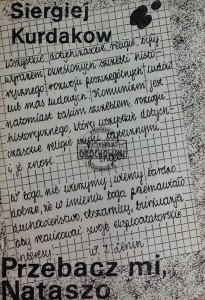 Siergiej
Kurdakow
Wszystkie dotychczasowe religie były
wyrazem określonych szczebli histo-
rycznego rozwoju poszczególnych ludów
lub mas ludowych. Komunizm jest
natomiast takim szczeblem rozwoju
historycznego, który wszystkie dotych-
czasowe religie czyni zbytecznymi
i je znosi
W boga nie wierzymy i wiemy bardzo
dobrze, że w imieniu boga przemawiało
duchowieństwo, obszarnicy, burżuazja,
aby realizować swoje eksploatatorskie
interesy.
W. I. Lenin
Przebacz mi,
Nataszo